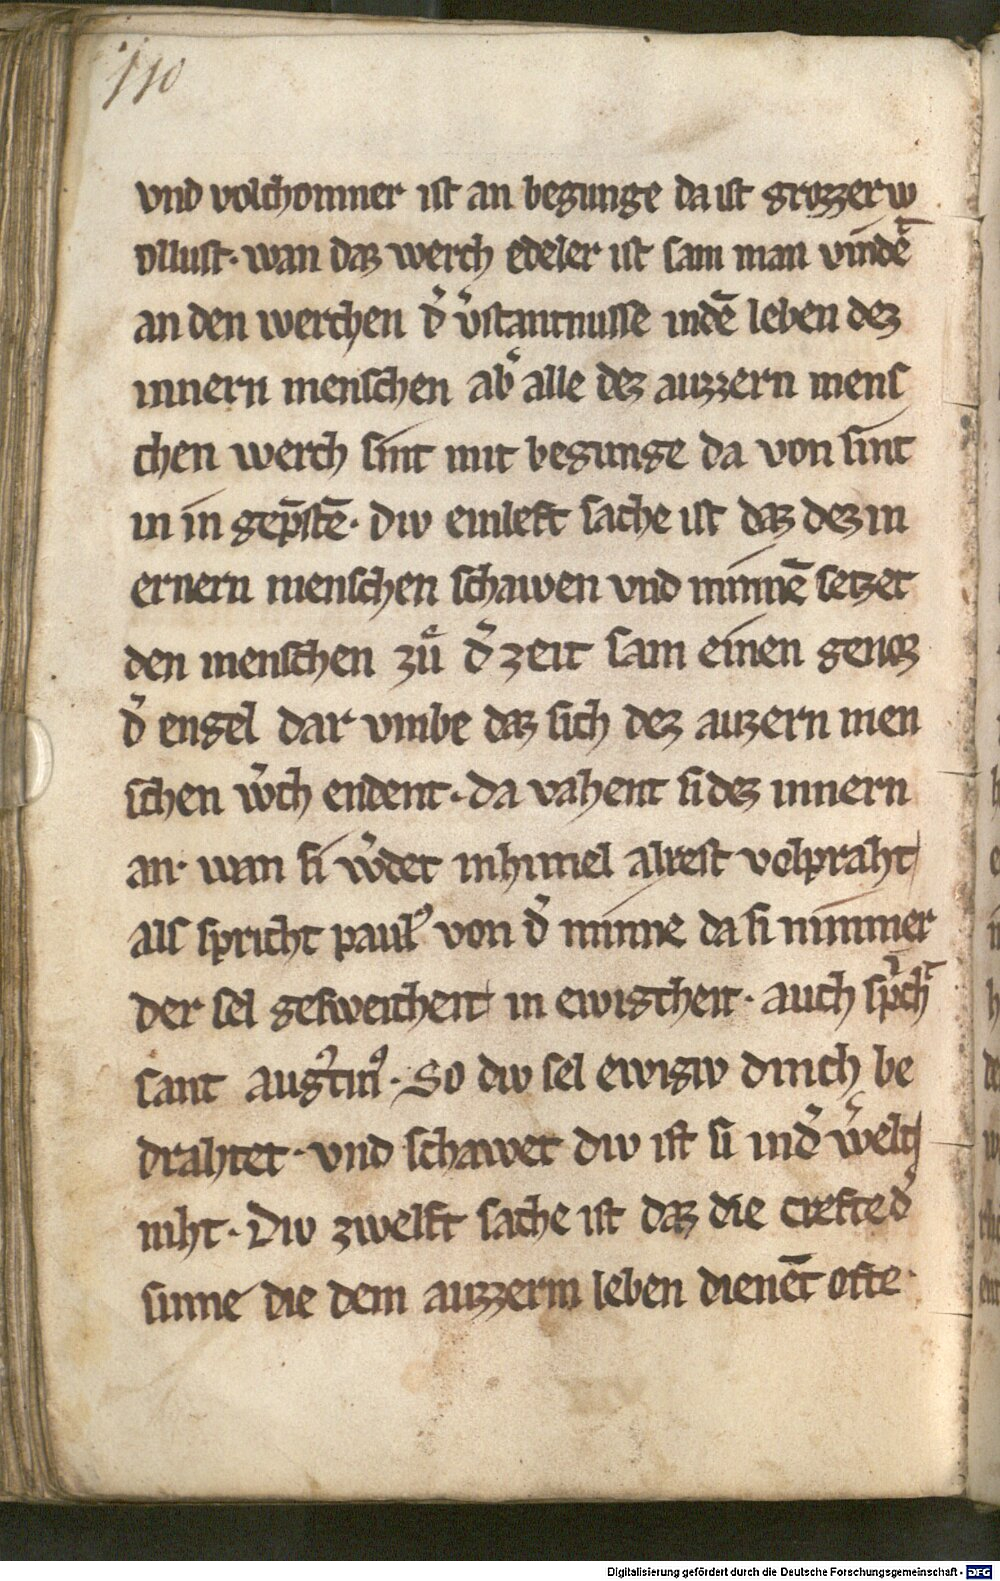 110
vnd volchomner ist an begunge da ist grozzer w
ollust · wan daz werch edeler ist sam man vindēt
an den werchen d̾ v̾stantnusse indē leben dez
innern menschen ab̾ alle dez auzzern mens
chen werch sint mit begunge da von sint
in in gep̄stē · Diw einleft sache ist daz dez in
ernern menschen schawen vnd minnē setzet
den menschen zuͤ d̾ zeit sam einen genoz
d̾ engel dar vmbe daz sich dez auzern men
schen w̾ch endent · da vahent si dez innern
an · wan si w̾det inhimel alrest volpraht
als spricht paul᾽ von d̾ minne da si nimmer
der sel gesweichent in ewigcheit · auch sp̾cht
sant aug᾽tin᾽ · So diw sel ewigiw dinch be
drahtet · vnd schawet diw ist si in d̾ w̾elt
niht · Diw zwelft sache ist daz die crefte d̾
sinne die dem auzzerm leben dienēt ofte ·
Digitalisierung gefördert durch die Deutsche Forschungsgemeinschaft - DFG